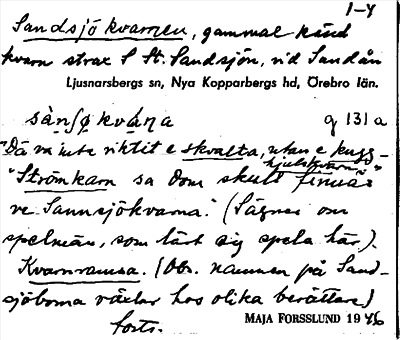 1-4
Sandsjökvarnen, gammal känd
kvarn strax S St. Sandsjön, vid Sandån
Ljusnarsbergs sn, Nya Kopparbergs hd, Örebro län.
sànʃø̀kváɳa g 131 a
"Dä va inte riktit e skvalta, utan e kugg-
hjulskvarn."
"Strömkarn sa dom skulle finnas
ve Sannsjökvarna." (Sägner om
spelmän, som lärt sig spela här).
Kvarnramsa. (Obs. namnen på Sand-
sjöborna växlar hos olika berättare)
forts.
MAJA FORSSLUND 1946